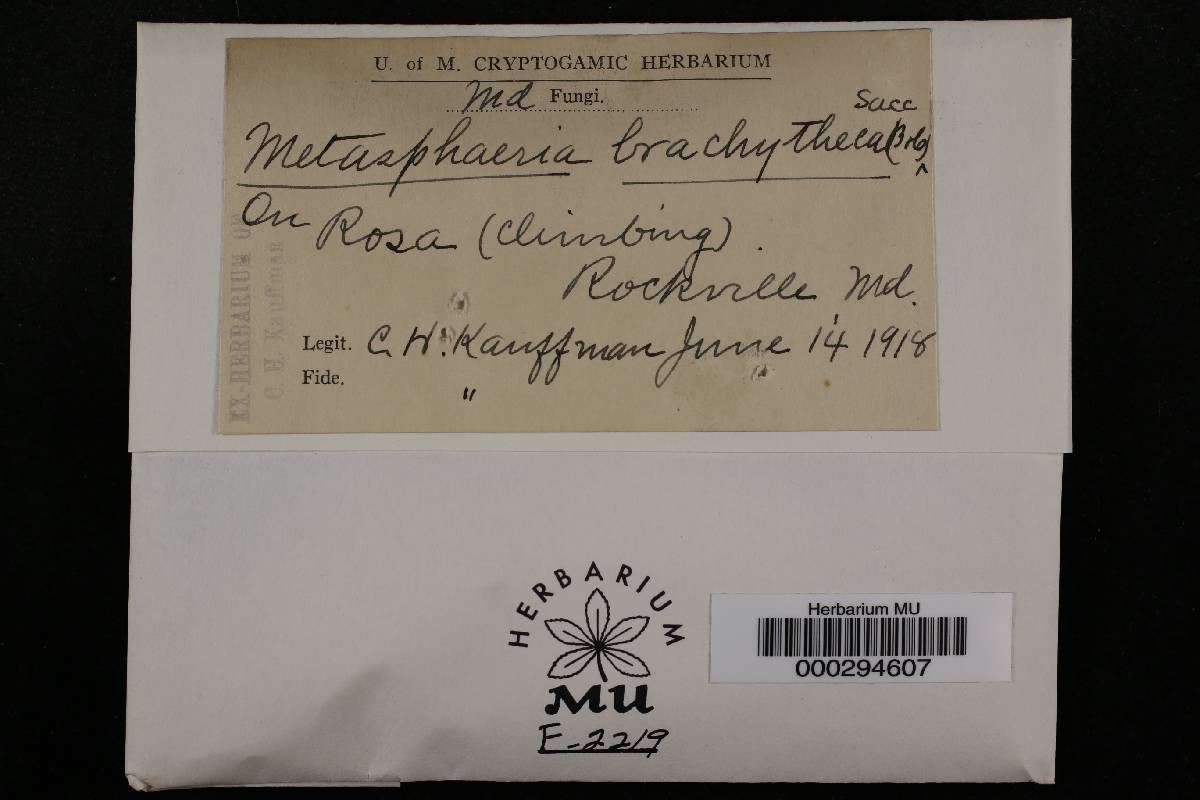 U. of M. CRYPTOGAMIC HERBARIUM
Md Fungi.
Sacc
Metasphaeria brachytheca
On Rosa (climbing).
Rockville Md.
Legit. C. H. Kauffman June 14 1918
Fide. "
EX-HERBARIUM OF
C. H. Kauffman
HERBARIUM
MU
F-2219
Herbarium MU
000294607